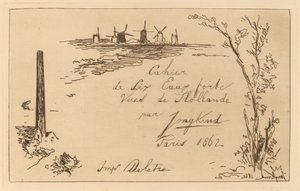 Cahier
de six Eaux forte
Vues de Hollande
par Jongkind
Paris 1862
Impr Delatre